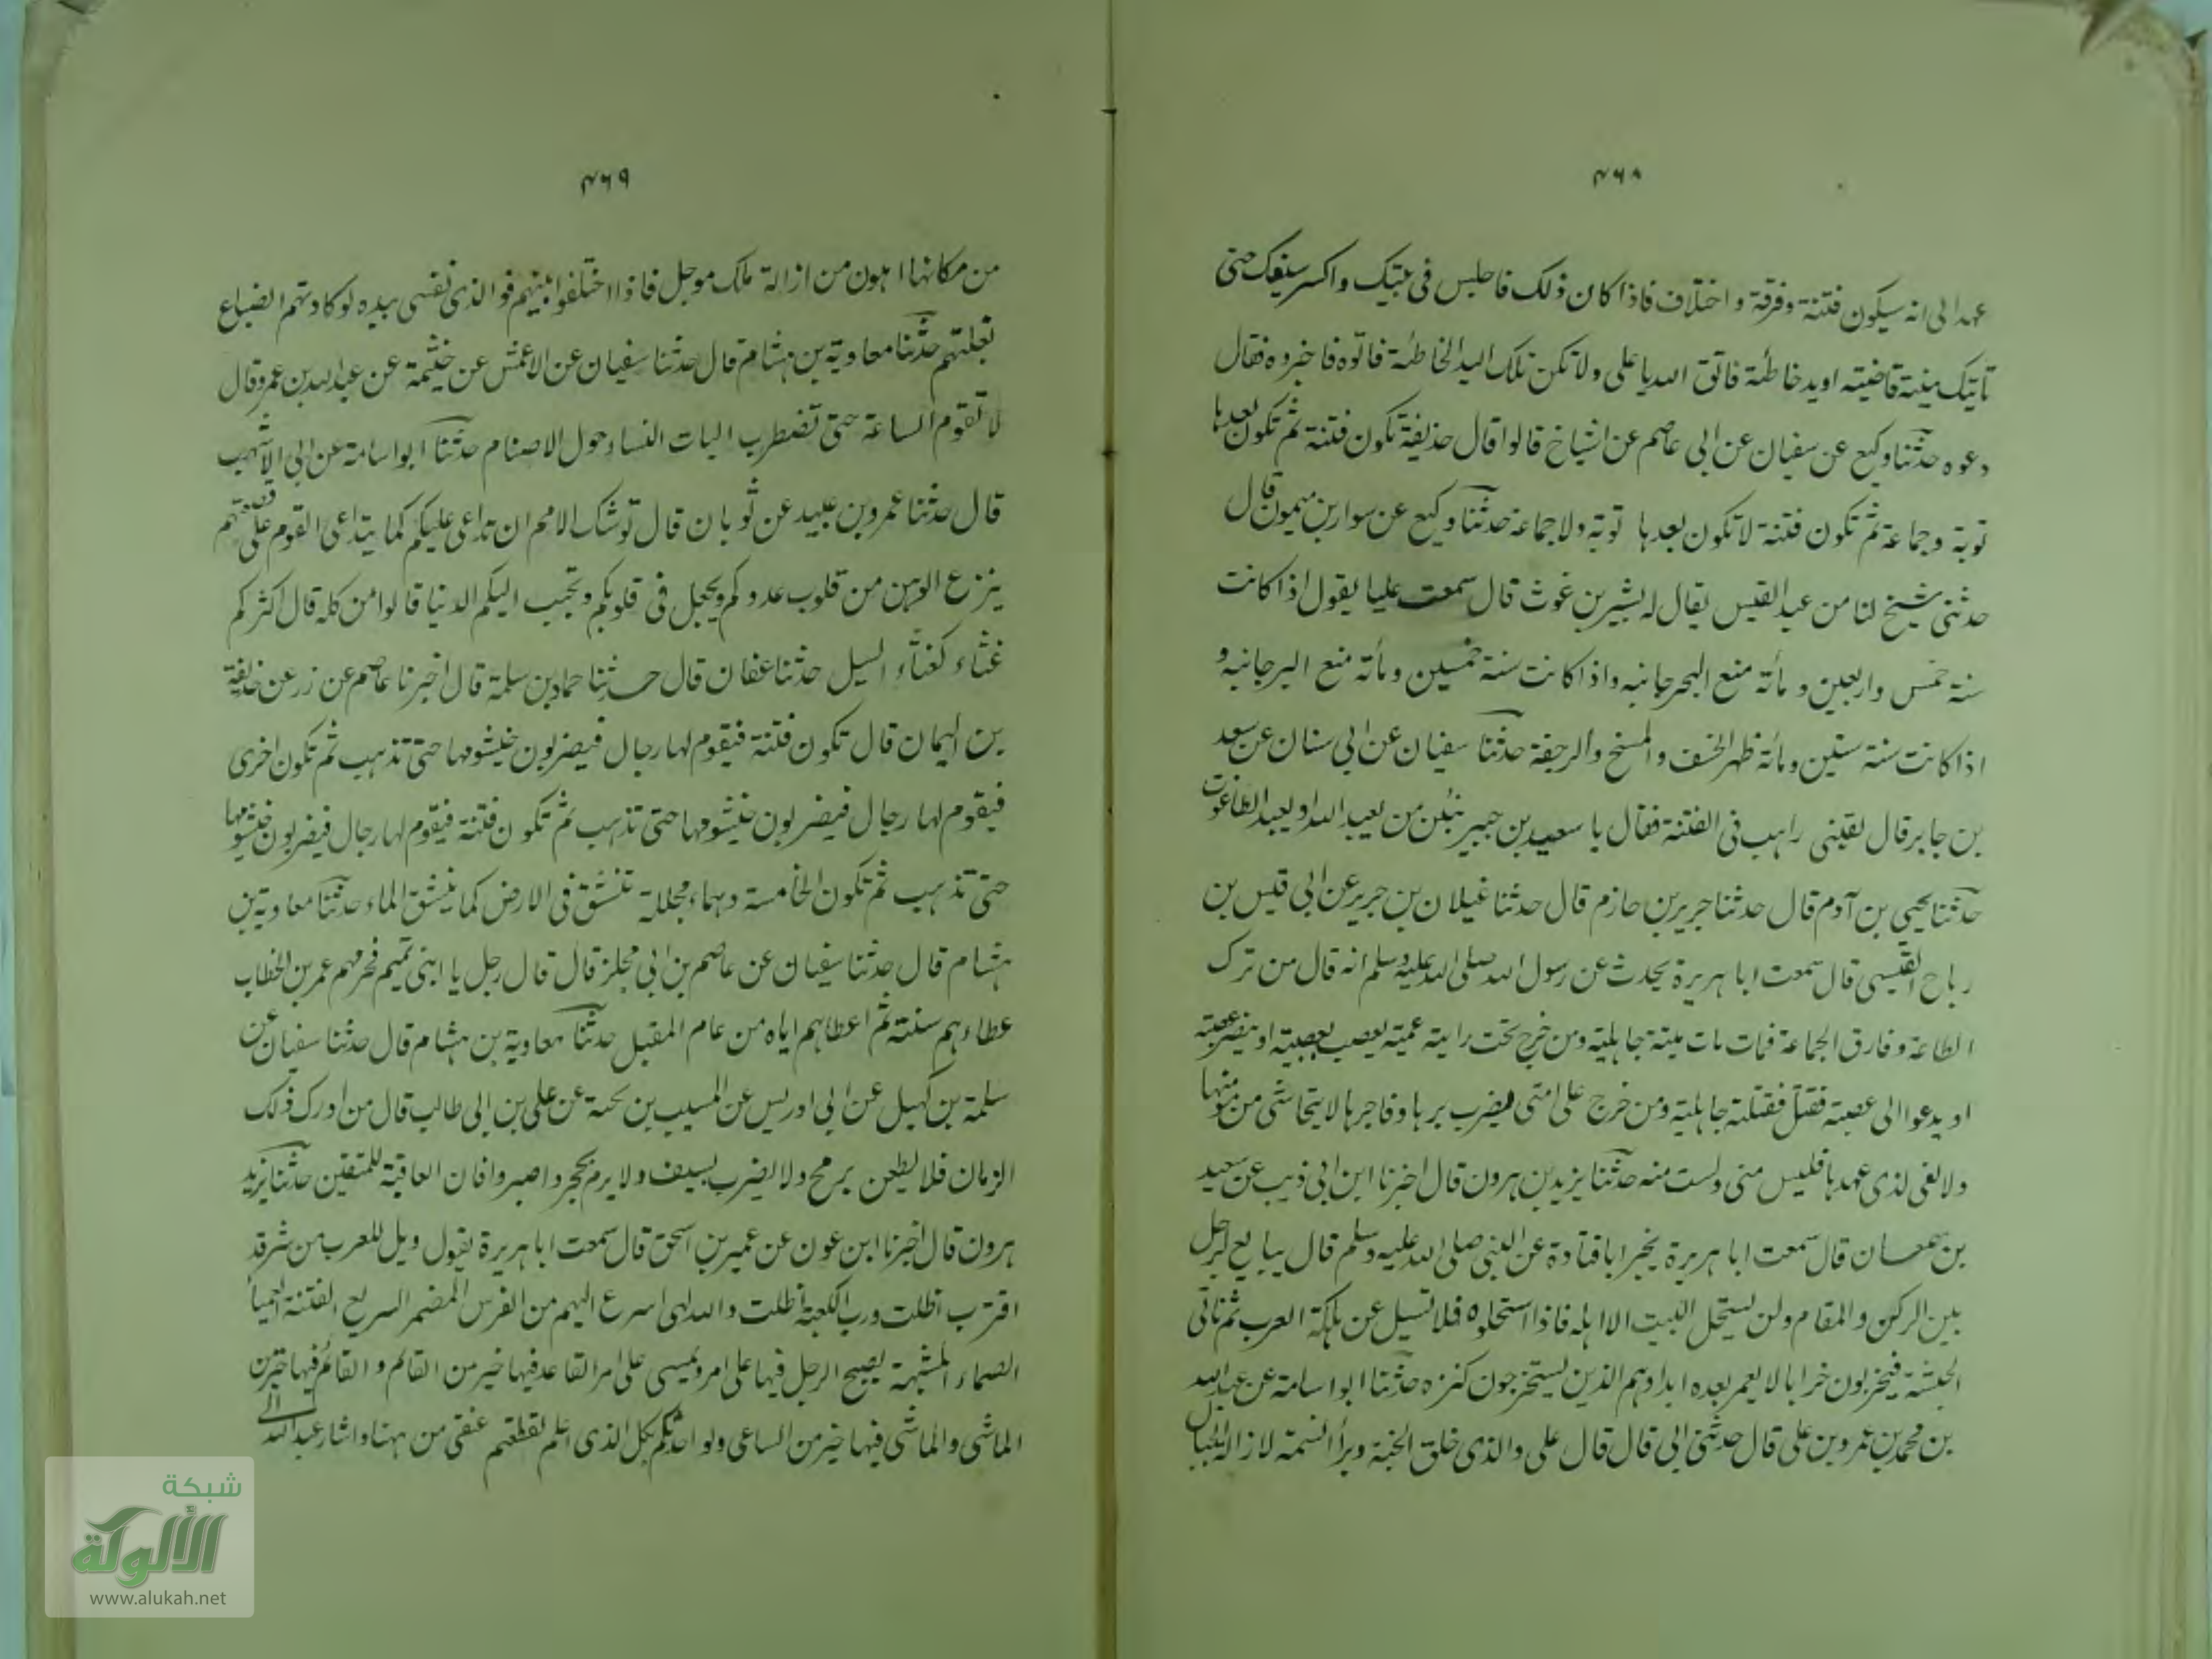 ٤٦٨
عهد الى انه سيكون فتنة وفرقة واختلاف فاذا كان ذلك فاجلس فى بيتك واكسر سيفك حتى
تأتيك منية قاضية او يد خاطئة فاتق الله يا على ولا تكن تلك اليد الخاطئة فاتوه فاخبروه فقال
دعوه حدثنا وكيع عن سفيان عن ابى عاصم عن اشياخ قالوا قال حذيفة تكون فتنة ثم تكون بعدها
توبة وجماعة ثم تكون فتنة لا تكون بعدها توبة ولا جماعة حدثنا وكيع عن سوار بن ميمون قال
حدثنى شيخ لنا من عبد القيس يقال له بشير بن غوث قال سمعت عليا يقول اذا كانت
سنة خمس واربعين ومأته منع البحر جانبه واذا كانت سنة خمسين ومأته منع البر جانبه و
اذا كانت سنة ستين ومأته ظهر الخسف والمسخ والرجفة حدثنا سفيان عن ابى سنان عن سعد
بن جابر قال لقينى راهب فى الفتنة فقال يا سعيد بن جبير تبين من يعبد الله او يعبد الطاغوت
حدثنا يحيى بن آدم قال حدثنا جرير بن حازم قال حدثنا غيلان بن جرير عن ابى قيس بن
رباح القيسى قال سمعت ابا هريرة يحدث عن رسول الله صلى الله عليه وسلم انه قال من ترك
الطاعة وفارق الجماعة فمات مات ميتة جاهلية ومن خرج تحت راية عمية يعصب بعصبية او ينصر عصبة
او يدعو الى عصبة فقتل فقتلة جاهلية ومن خرج على امتى فيضرب برها وفاجرها لا يتحاشى من مؤمنها
ولا يفى لذى عهدها فليس منى ولست منه حدثنا يزيد بن هرون قال اخبرنا ابن ابى ذيب عن سعيد
بن سمعان قال سمعت ابا هريرة يخبر ابا قتادة عن النبى صلى الله عليه وسلم قال يبايع لرجل
بين الركن والمقام ولن يستحل البيت الا اهله فاذا استحلوه فلا تسيل عن هلكة العرب ثم تاتى
الحبشة فيخربون خرابا لا يعمر بعده ابدا وهم الذين يستخرجون كنزه حدثنا ابو اسامة عن عبد الله
بن محمد بن عمرو بن على قال حدثنى ابى قال قال على والذى خلق الحبة وبرأ النسمة لازالة الجبال
٤٦٩
من مكانها اهون من ازالة ملك موجل فاذا اختلفوا بينهم فوالذى نفسى بيده لو كادتهم الضباع
لغلبتهم حدثنا معاوية بن هشام قال حدثنا سفيان عن الاعمش عن خيثمة عن عبد الله بن عمرو قال
لا تقوم الساعة حتى تضطرب اليات النساء حول الاصنام حدثنا ابو اسامة عن ابى الاشهب
قال حدثنا عمرو بن عبيد عن ثوبان قال توشك الامم ان تداعى عليكم كما يتداعى القوم على قصعتهم
ينزع الوهن من قلوب عدوكم ويجعل فى قلوبكم وتحبب اليكم الدنيا قالوا من كله قال اكثركم
غثاء كغثاء السيل حدثنا عفان قال حدثنا حماد بن سلمة قال اخبرنا عاصم عن زر عن حذيفة
بن اليمان قال تكون فتنة فيقوم لها رجال فيضربون خيشومها حتى تذهب ثم تكون اخرى
فيقوم لها رجال فيضربون خيشومها حتى تذهب ثم تكون فتنة فيقوم لها رجال فيضربون خيشومها
حتى تذهب ثم تكون الخامسة دهماء مجللة تنشق فى الارض كما ينشق الماء حدثنا معاوية بن
هشام قال حدثنا سفيان عن عاصم بن ابى مجلز قال قال رجل يا ابنى تميم فحرمهم عمر بن الخطاب
عطاءهم سنة ثم اعطاهم اياه من عام المقبل حدثنا معاوية بن هشام قال حدثنا سفيان عن
سلمة بن كهيل عن ابى ادريس عن المسيب بن نجبة عن على بن ابى طالب قال من ادرك ذلك
الزمان فلا يطعن برمح ولا يضرب بسيف ولا يرم بحجر واصبروا فان العاقبة للمتقين حدثنا يزيد
هرون قال اخبرنا ابن عون عن عمير بن اسحق قال سمعت ابا هريرة يقول ويل للعرب من شر قد
اقترب اظلت ورب الكعبة اظلت والله لهى اسرع اليهم من الفرس المضمر السريع الفتنة العمياء
الصماء المشبهة يصبح الرجل فيها على امر ويمسى على امر القاعد فيها خير من القائم والقائم فيها خير من
الماشى والماشى فيها خير من الساعى ولو احدثكم بكل الذى اعلم لقطعتم عنقى من ههنا واشار عبد الله الى
شبكة
الألوكة
www.alukah.net